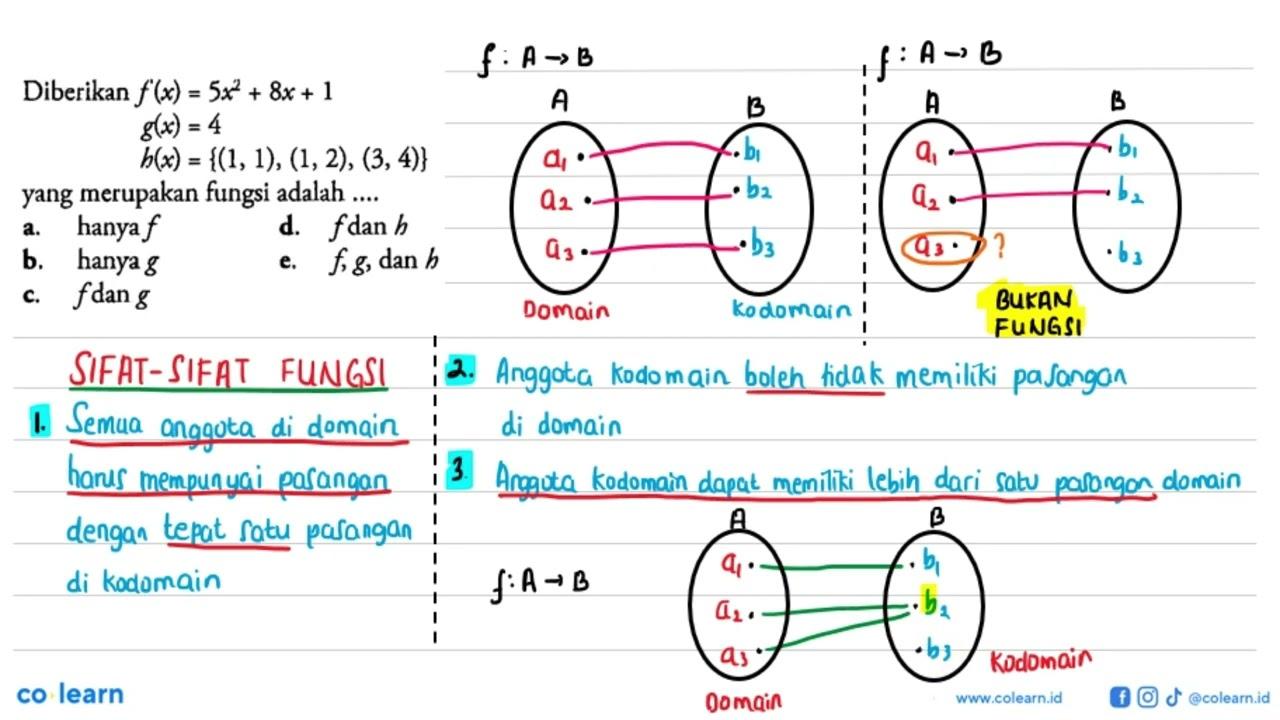 Diberikan f(x) = 5x² + 8x + 1
g(x) = 4
h(x) = {(1, 1), (1, 2), (3, 4)}
yang merupakan fungsi adalah ....
a. hanya f
d. f dan h
b. hanya g
e. f, g, dan h
c. f dan g
f : A → B
A
B
a₁
b₁
a₂
b₂
a₃
b₃
Domain
Kodomain
f : A → B
A
B
a₁
b₁
a₂
b₂
a₃ ?
b₃
BUKAN
FUNGSI
SIFAT-SIFAT FUNGSI
1. Semua anggota di domain
harus mempunyai pasangan
dengan tepat satu pasangan
di kodomain
2. Anggota kodomain boleh tidak memiliki pasangan
di domain
3. Anggota kodomain dapat memiliki lebih dari satu pasangan domain
f : A → B
A
B
a₁
b₁
a₂
b₂
a₃
b₃
Domain
Kodomain
co learn
www.colearn.id
@colearn.id